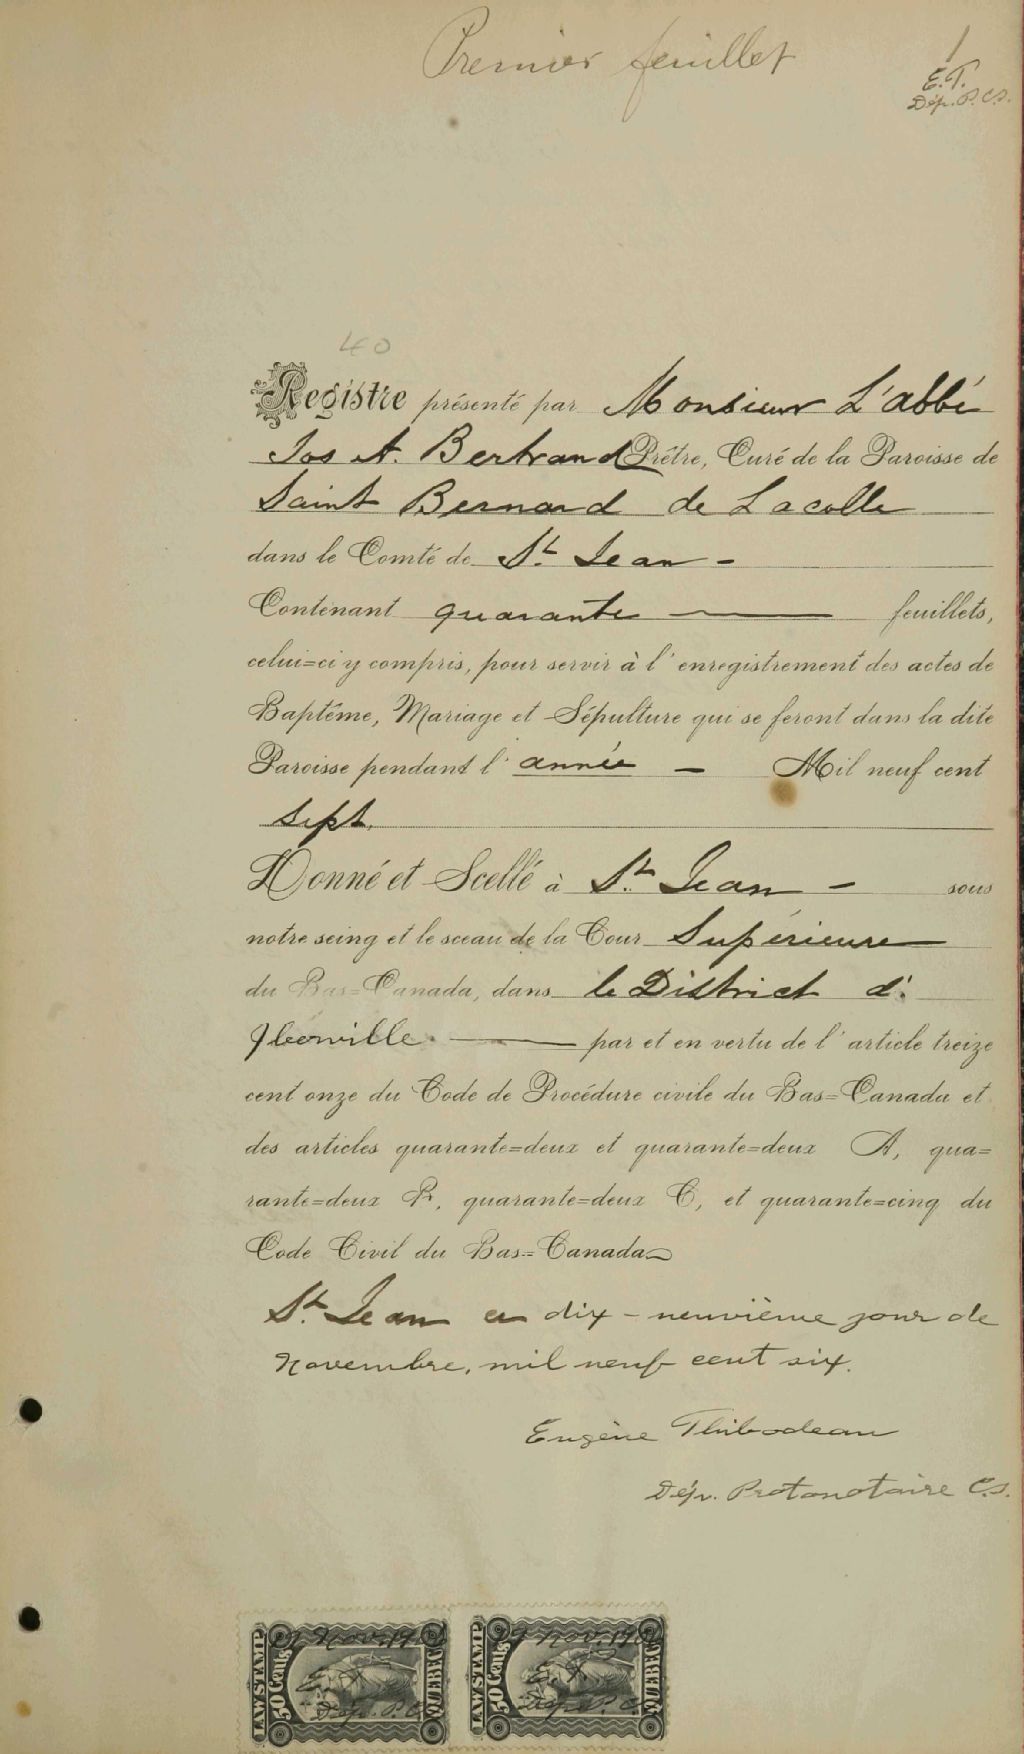 Premier feuillet
1
E.T.
Dép. P.C.S.
40
Registre présenté par Monsieur L'abbé
Jos A. Bertrand Prêtre, Curé de la Paroisse de
Saint Bernard de Lacolle
dans le Comté de St. Jean -
Contenant quarante feuillets,
celui=ci y compris, pour servir à l'enregistrement des actes de
Baptême, Mariage et Sépulture qui se feront dans la dite
Paroisse pendant l'année - Mil neuf cent
sept.
Donné et Scellé à St. Jean - sous
notre seing et le sceau de la Cour Supérieure
du Bas=Canada, dans le District d'
Iberville. par et en vertu de l'article treize
cent onze du Code de Procédure civile du Bas=Canada et
des articles quarante=deux et quarante=deux A, qua=
rante=deux B, quarante=deux C, et quarante=cinq du
Code Civil du Bas=Canada
St. Jean ce dix-neuvième jour de
Novembre, mil neuf cent six.
Eugène Thibodeau
Dép. Protonotaire C.S.
LAW STAMP
50 Cents
QUEBEC
19 Nov. 1906
E.T.
Dép. P.C.
LAW STAMP
50 Cents
QUEBEC
19 Nov. 1906
E.T.
Dép. P.C.